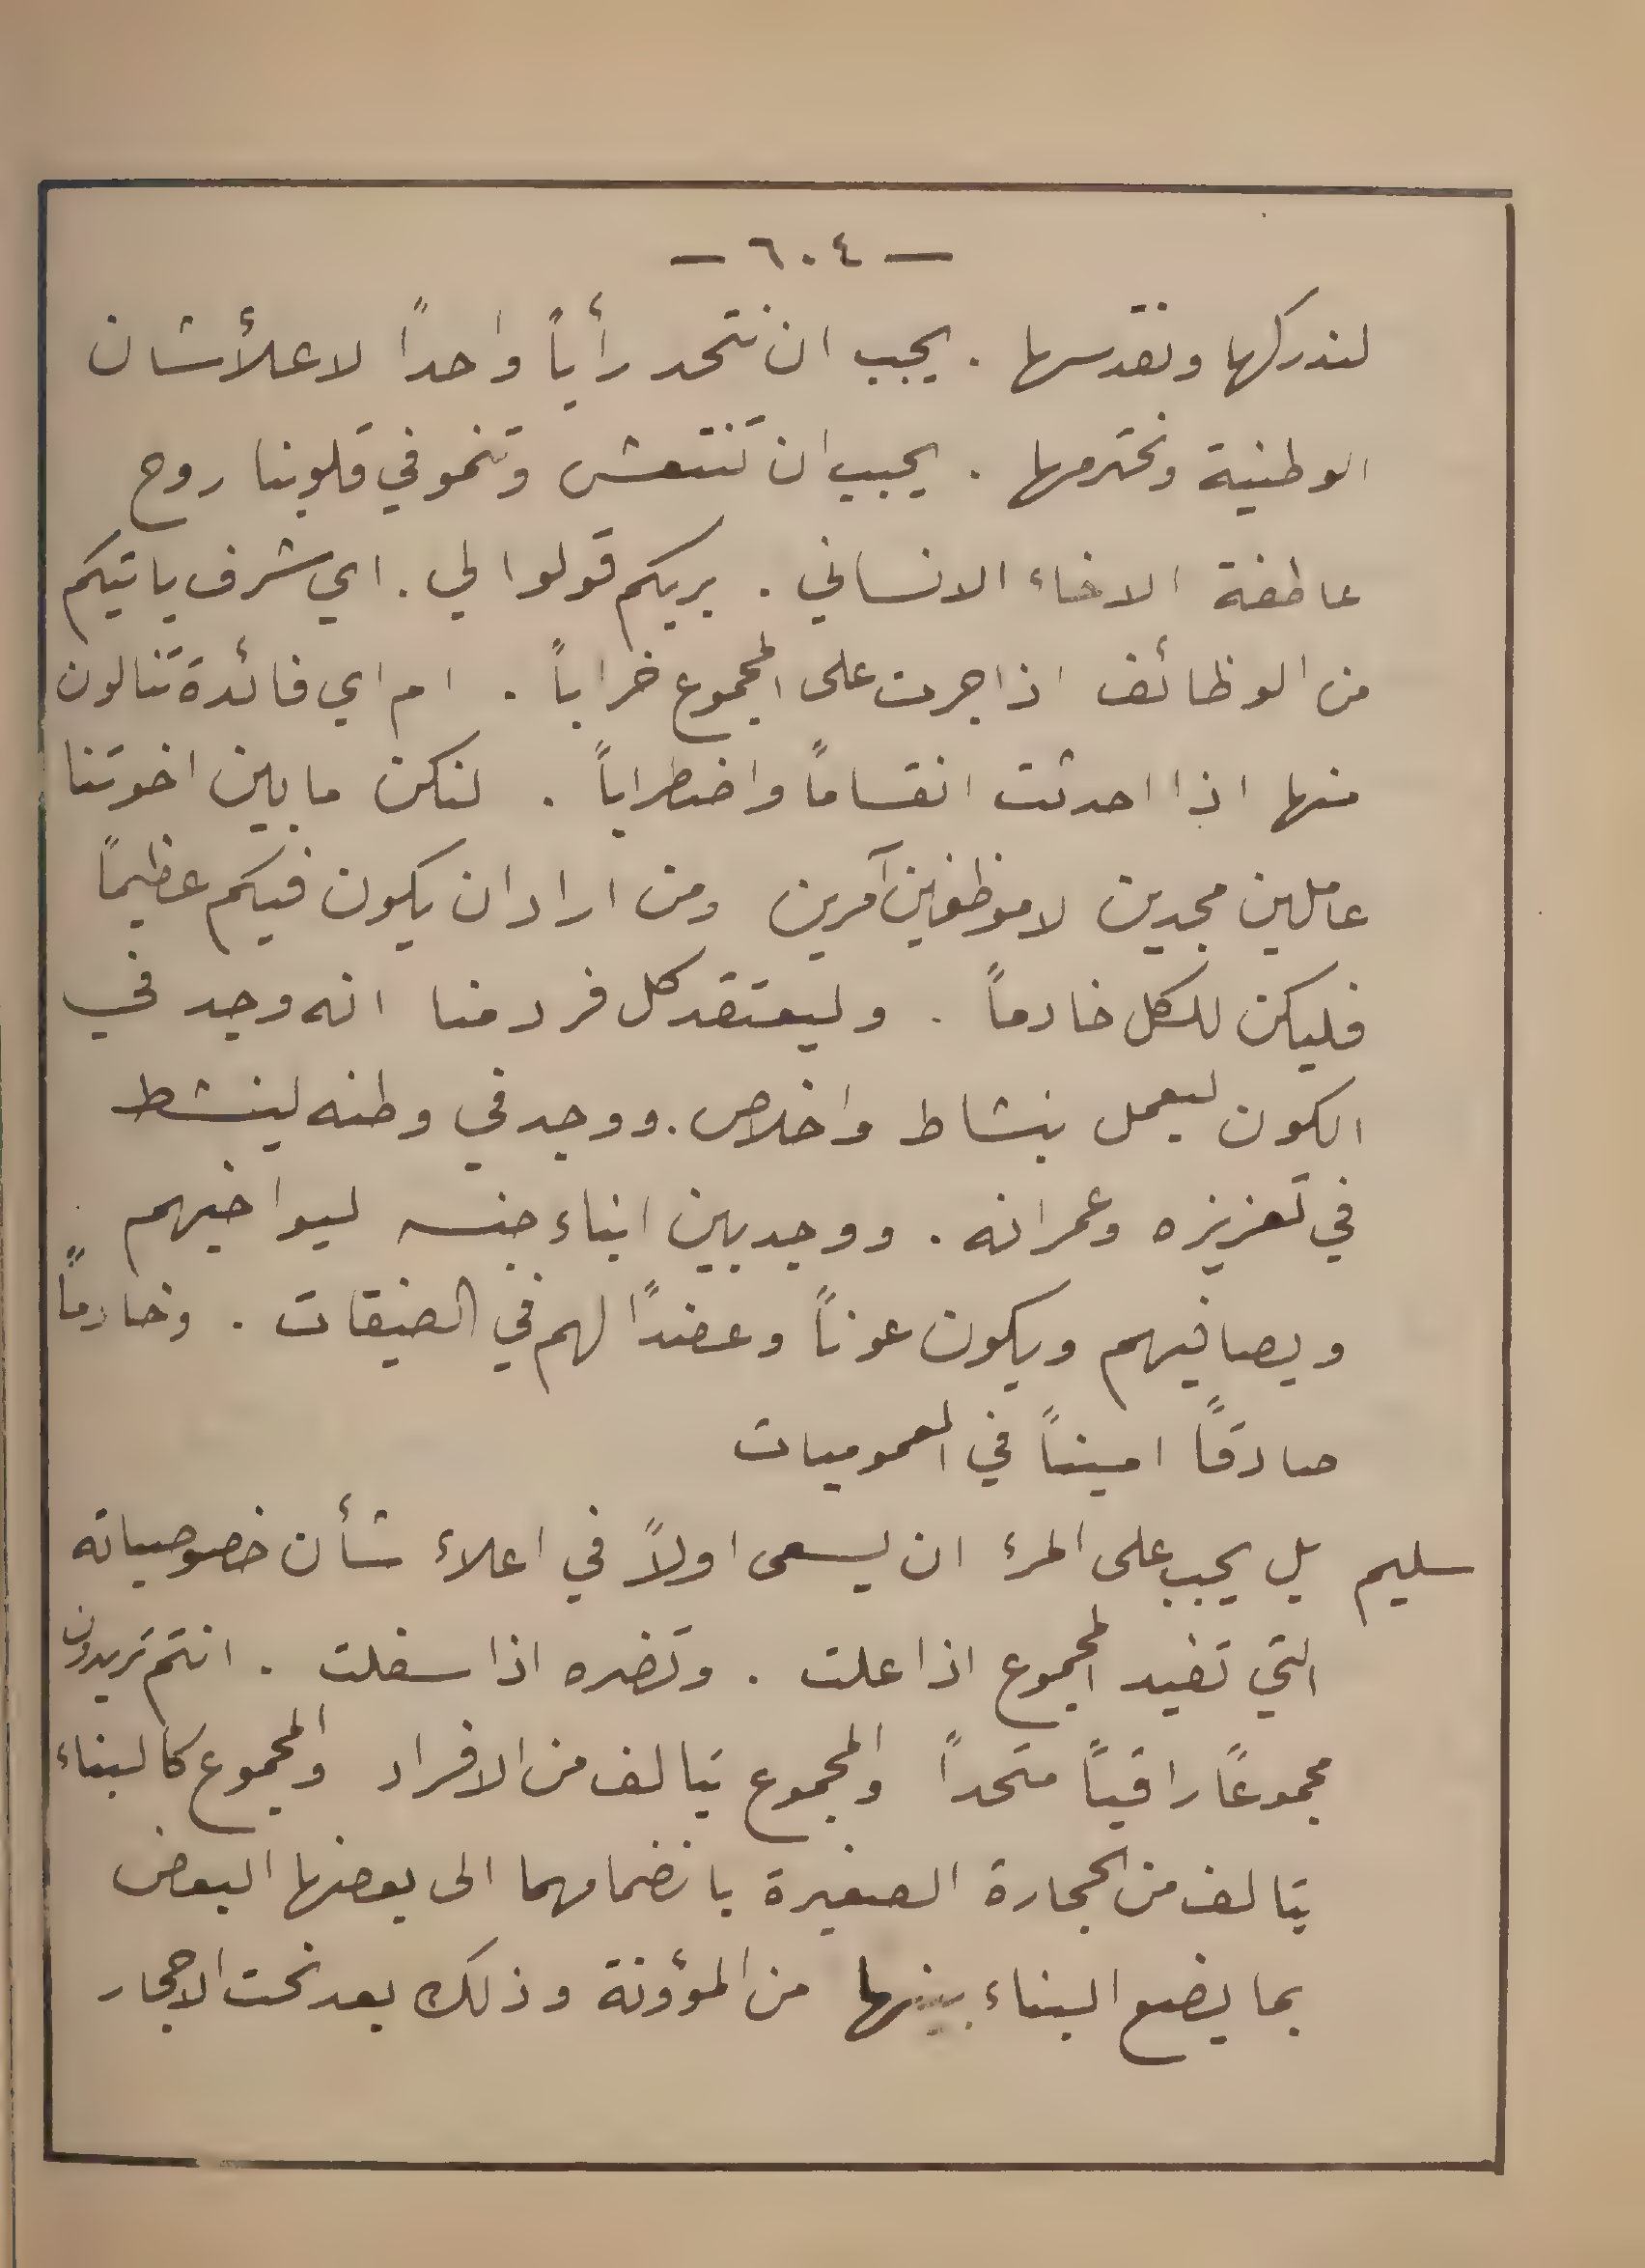 — ٦٠٤ —
لندركها ونقدسها . يجب ان نتحد رأياً واحداً لاعلأشان
الوطنية ونحترمها . يجب ان تنتعش وتنمو في قلوبنا روح
عاطفة الاخاء الانساني . بربكم قولوا لي . اي شرف ياتيكم
من الوظائف اذا جرت على المجموع خراباً . ام اي فائدة تنالون
منها اذا احدثت انقساماً واضطراباً . لنكن ما بين اخوتنا
عاملين مجدين لا موظفين آمرين ومن اراد ان يكون فيكم عظيماً
فليكن للكل خادماً . وليعتقد كل فرد منا انه وجد في
الكون ليعمل بنشاط واخلاص . ووجد في وطنه لينشط
في تعزيزه وعمرانه . ووجد بين ابناء جنسه ليواخيهم
ويصافيهم ويكون عوناً وعضداً لهم في الضيقات . وخادماً
صادقاً اميناً في العموميات
سليم بل يجب على المرء ان يسعى اولاً في اعلاء شأن خصوصياته
التي تفيد المجموع اذا علت . وتضره اذا سفلت . انتم تريدون
مجموعاً راقياً متحداً والمجموع يتالف من الافراد والمجموع كالبناء
يتالف من الحجارة الصغيرة بانضمامهما الى بعضها البعض
بما يضع البناء بينها من المؤونة وذلك بعد نحت الاحجار